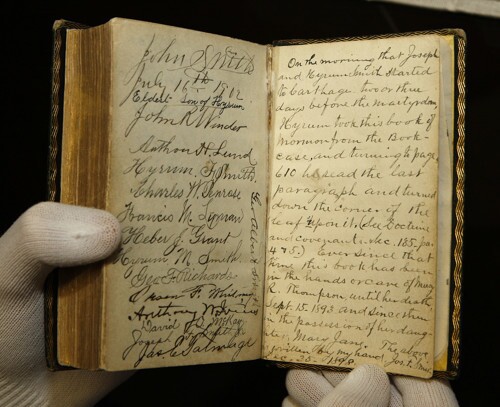 John Smith
July 16th 1902
Eldest Son of Hyrum
John R Winder
Anthon H. Lund
Hyrum F. Smith
Charles W. Penrose
Francis M. Lyman
Heber J. Grant
Hyrum M. Smith
Geo F. Richards
Orson F. Whitney
Anthony W. Ivins
David O. McKay
Joseph F. Smith Jr
Jas E Talmage
On the morning that Joseph
and Hyrum Smith started
to Carthage two or three
days before the martyrdom,
Hyrum took this book of
Mormon from the Book-
case, and turning to page
610 he read the last
paragraph and turned
down the corner of the
leaf upon it. (See Doctrine
and covenants sec. 135, par
4 & 5.) Ever since that
time this book has been
in the hands or care of Mercy
R. Thompson, until her death
Sept. 15, 1893 and since then
in the possession of her daugh-
ter, Mary Jane. The above
written by my hand, Jos. F. Smith